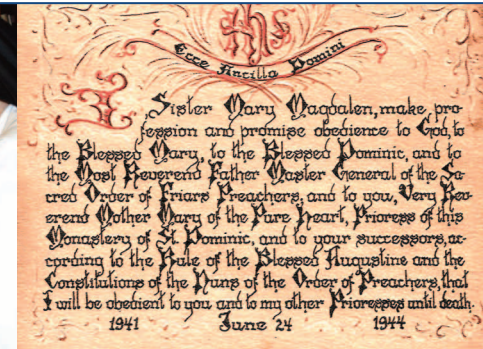 IHS
Ecce Ancilla Domini
I, Sister Mary Magdalen, make pro-
fession and promise obedience to God, to
the Blessed Mary, to the Blessed Dominic, and to
the Most Reverend Father Master General of the Sa-
cred Order of Friars Preachers, and to you, Very Rev-
erend Mother Mary of the Pure Heart, Prioress of this
Monastery of St. Dominic, and to your successors, ac-
cording to the Rule of the Blessed Augustine and the
Constitutions of the Nuns of the Order of Preachers, that
I will be obedient to you and to my other Prioresses until death.
1941 June 24 1944